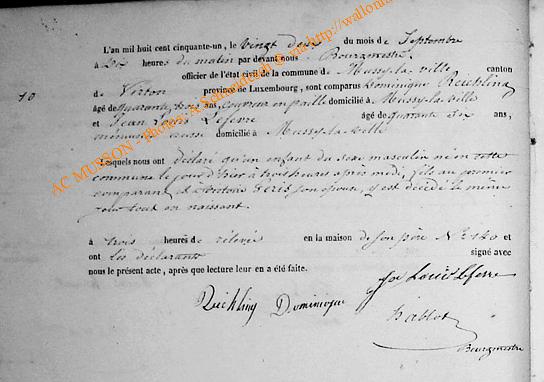 L'an mil huit cent cinquante-un, le vingt deux du mois de Septembre
à dix heures du matin par devant nous Bourgmestre
officier de l'état civil de la commune de Mussy-la-ville canton
de Virton province de Luxembourg, sont comparus Dominique Reichling
10
âgé de quarante trois ans, couvreur en paille domicilié à Mussy-la-ville
et Jean Louis Lefevre âgé de quarante six ans,
domicilié à Mussy-la-ville
Lesquels nous ont déclaré qu'un enfant du sexe masculin né en cette
commune le jour d'hier à trois heures après midi, fils du premier
comparant et à son épouse, y est décédé le même
jour tout en naissant.
à trois heures de rélevée en la maison de son père N° 140 et
ont les déclarants signé avec
nous le présent acte, après lecture leur en a été faite.
Reichling Dominique
Louis Lefevre
Hablot
Bourgmestre
AC MUSSON - photos: A. via http://wallonia